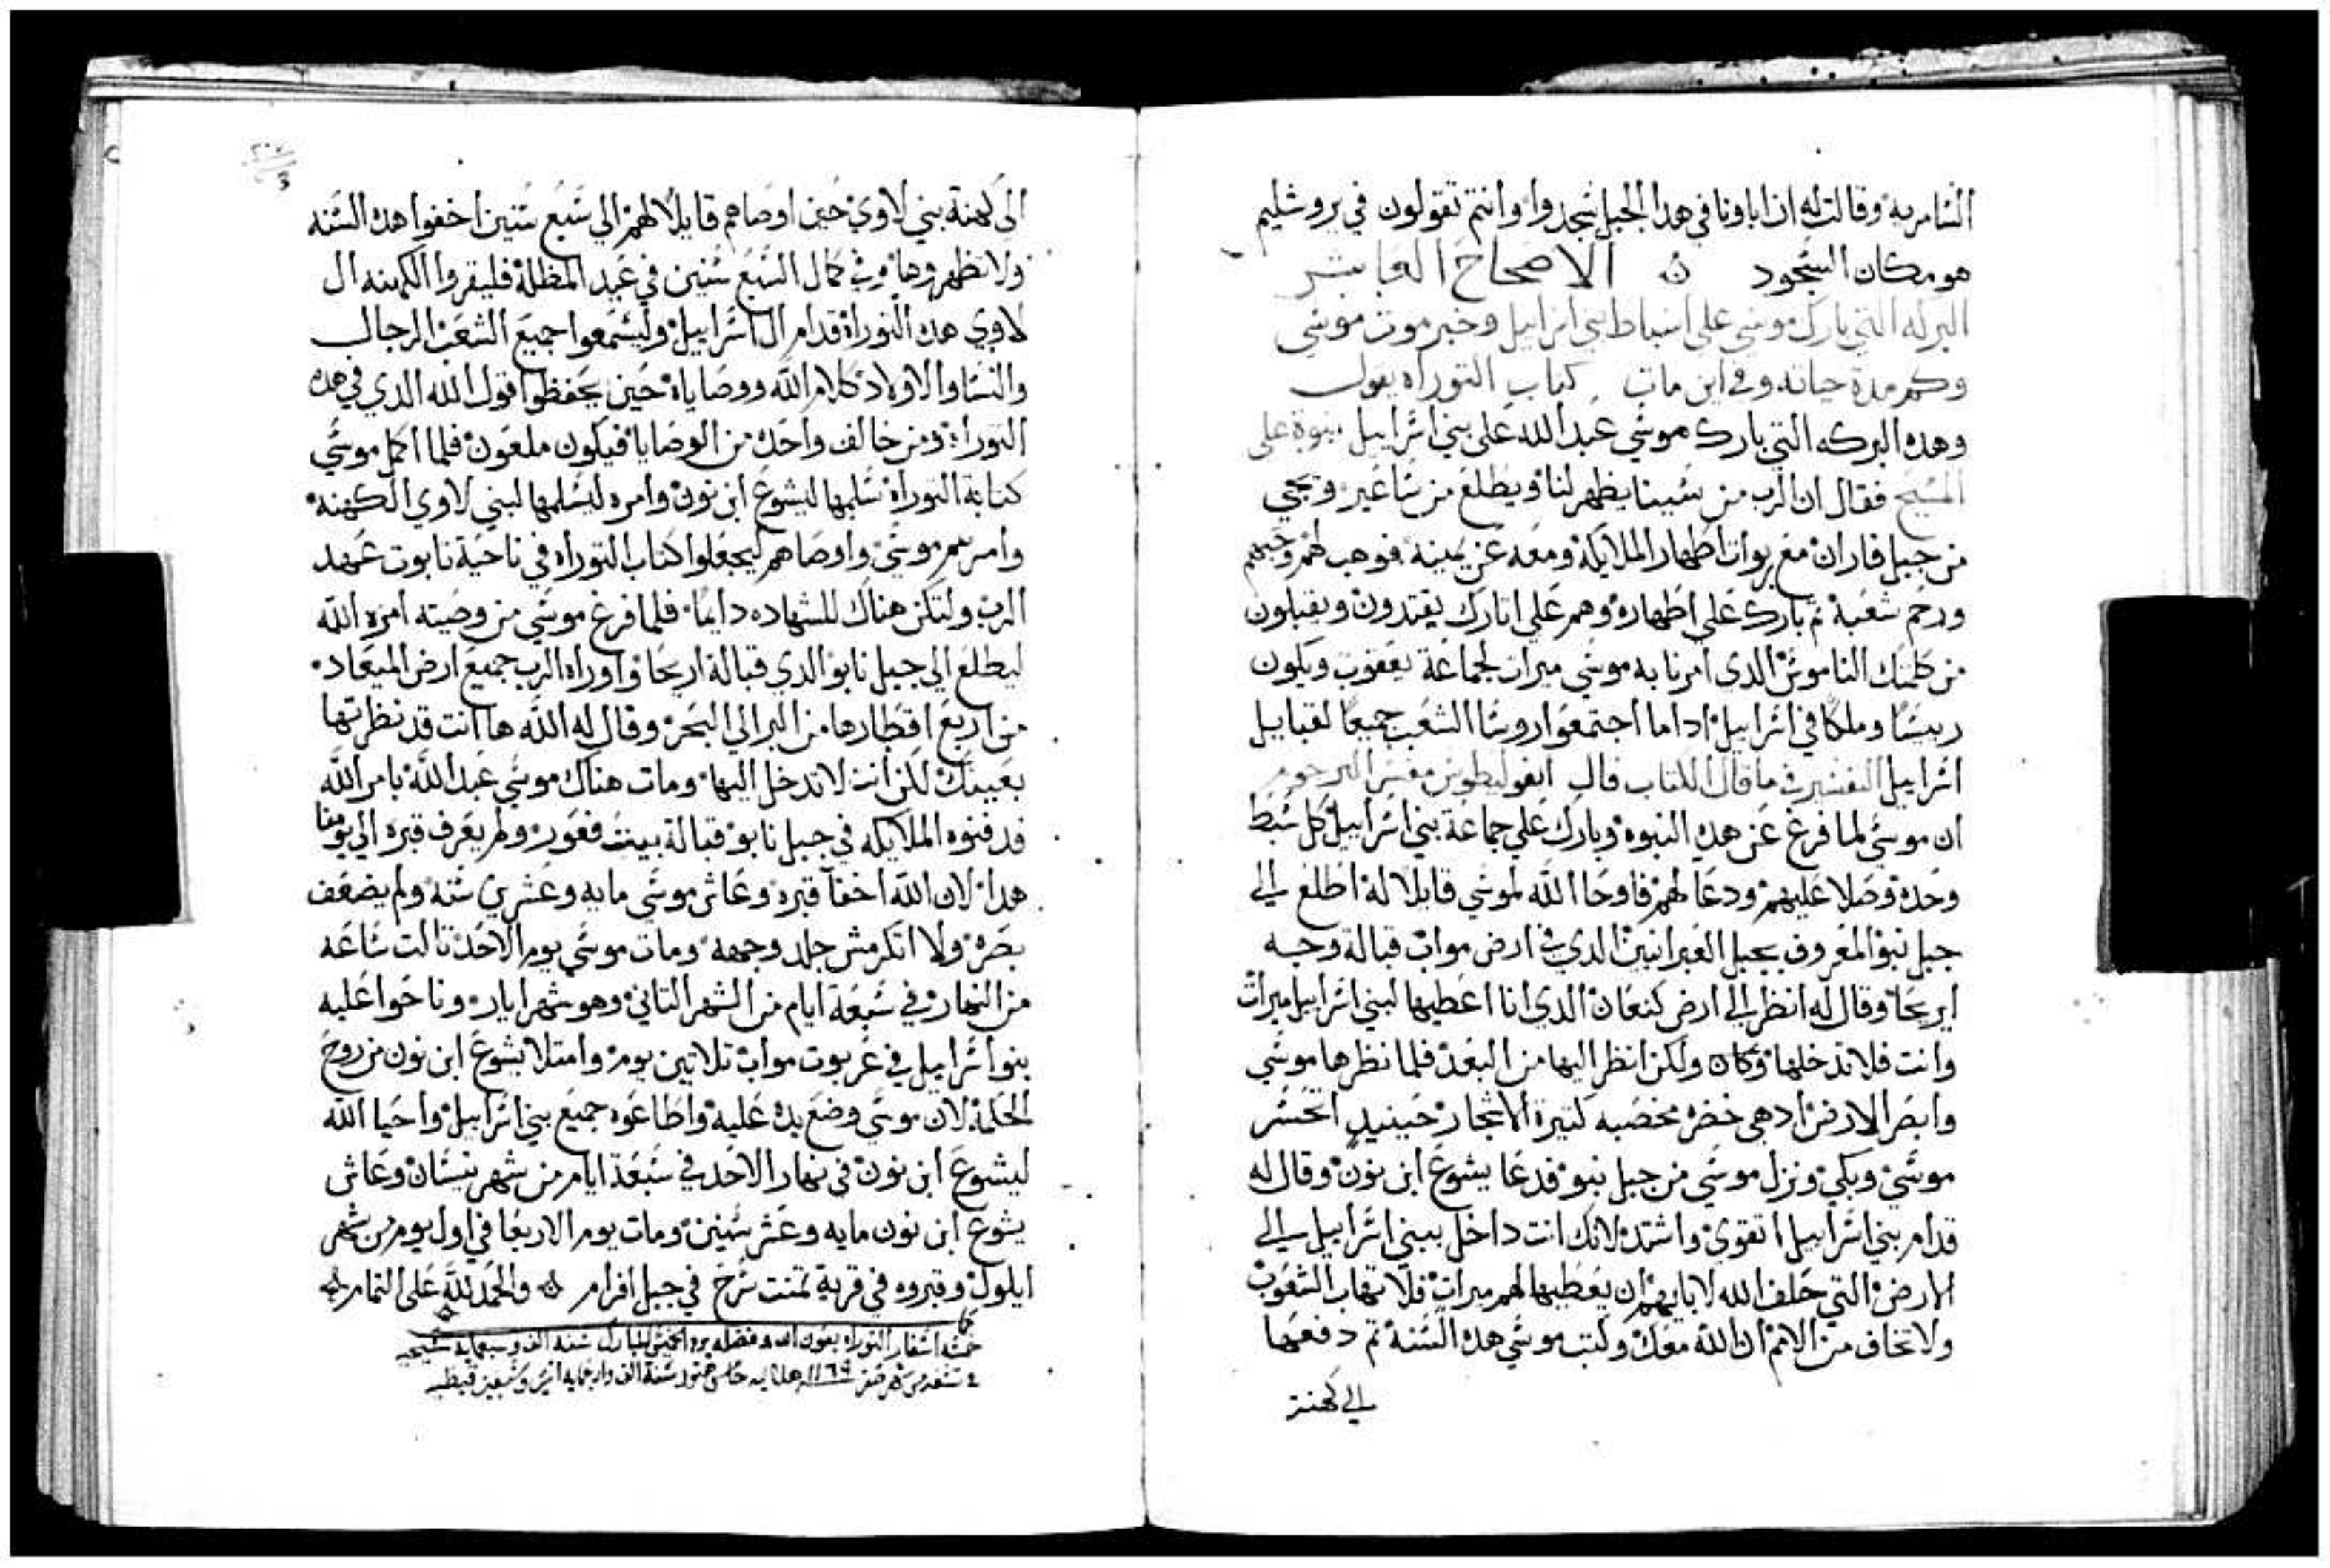 السامريه وقالت له ان اباونا في هدا الجبل سجدوا وانتم تقولون في يروشليم
هو مكان السجود الاصحاح العاشر
البركه التي بارك موسي علي اسباط بني اسراييل وخبر موت موسي
وكم مدة حياته وفي اين مات كتاب التوراه يقول
وهده البركه التي بارك موسي عبد الله علي بني اسراييل نبوة علي
المسيح فقال ان الرب من سيينا يظهر لنا ويطلع من ساعير ويجي
من جبل فاران مع ربوات اطهار الملايكة ومعه عن يمينه فوهب لهم وحبهم
ورحم شعبة تم بارك علي اطهاره وهم علي اتارك يقتدون ويقبلون
من كلمتك الناموس الدي امرنا به موسي ميرات لجماعة يعقوب ويكون
رييسا وملكا في اسراييل ادا ما اجتمعوا روسا الشعب جميعا لقبايل
اسراييل التفسير في ما قال الكتاب قال ابفوليطوس مفسر الترجوم
ان موسي لما فرغ عن هده النبوه وبارك علي جماعة بني اسراييل كل سبط
وحده وصلا عليهم ودعا لهم فاوحا الله لموسي قايلا له اطلع الي
جبل نبو المعروف بجبل العبرانيين الدي في ارض مواب قبالة وجه
ايريحا وقال له انظر الي ارض كنعان الدي انا اعطيها لبني اسراييل ميرات
وانت فلا تدخلها ولكن انظر اليها من البعد فلما نظرها موسي
وابصر الارض ادهي خضره مخصبه كتيرة الاشجار حينيد اتحسر
موسي وبكي ونزل موسي من جبل نبو فدعا يشوع ابن نون وقال له
قدام بني اسراييل اتقوي واشتد لانك انت داخل ببني اسراييل الي
الارض التي حلف الله لابايهم ان يعطيها لهم ميرات فلا تهاب الشعوب
ولا تخاف من الامم ان الله معك وكتب موسي هده السنة تم دفعها
الي كهنة
الي كهنة بني لاوي حين اوصاهم قايلا لهم الي سبع سنين اخفوا هده السنه
ولا تظهروها وفي كمال السبع سنين في عيد المظلة فليقروا الكهنه ال
لاوي هده التوراة قدام ال اسراييل وليسمعوا جميع الشعب الرجال
والنسا والاولاد كلام الله ووصاياة حين يحفظوا قول الله الدي في هده
التوراة ومن خالف واحدة من الوصايا فيكون ملعون فلما اكمل موسي
كتابة التوراة سلمها ليشوع ابن نون وامره ليسلمها لبني لاوي الكهنة
وامرهم موسي واوصاهم ليجعلوا كتاب التوراه في ناحية تابوت عهد
الرب ولتكن هناك للشهاده دايما فلما فرغ موسي من وصيته امره الله
ليطلع الي جبل نابو الدي قبالة اريحا واوراه الرب جميع ارض الميعاد
من اربع اقطارها من البر الي البحر وقال له الله ها انت قد نظرتها
بعينك لكن انت لا تدخل اليها ومات هناك موسي عبد الله بامر الله
فدفنوه الملايكه في جبل نابو قبالة بيت فغور ولم يعرف قبره الي يومنا
هدا لان الله اخفا قبره وعاش موسي مايه وعشرين سنه ولم يضعف
بصره ولا اتكرمش جلد وجهه ومات موسي يوم الاحد تالت ساعه
من النهار في سبعة ايام من الشهر التاني وهو شهر ايار وناحوا عليه
بنو اسراييل في عربوت مواب تلاتين يوم وامتلا يشوع ابن نون من روح
الحكمة لان موسي وضع يده عليه واطاعوه جميع بني اسراييل واحيا الله
ليشوع ابن نون في نهار الاحد في سبعة ايام من شهر نيسان وعاش
يشوع ابن نون مايه وعشر سنين ومات يوم الاربعا في اول يوم من شهر
ايلول وقبروه في قرية تمنت سرح في جبل افرام والحمد لله علي التمام
خمسة اسفار التوراه بعون الله وفضله يوم الخميس المبارك سنة الف وسبعمايه
صفر ١١٦٩ هلاليه سنة الف واربعمايه اتنين وسبعين قبطيه